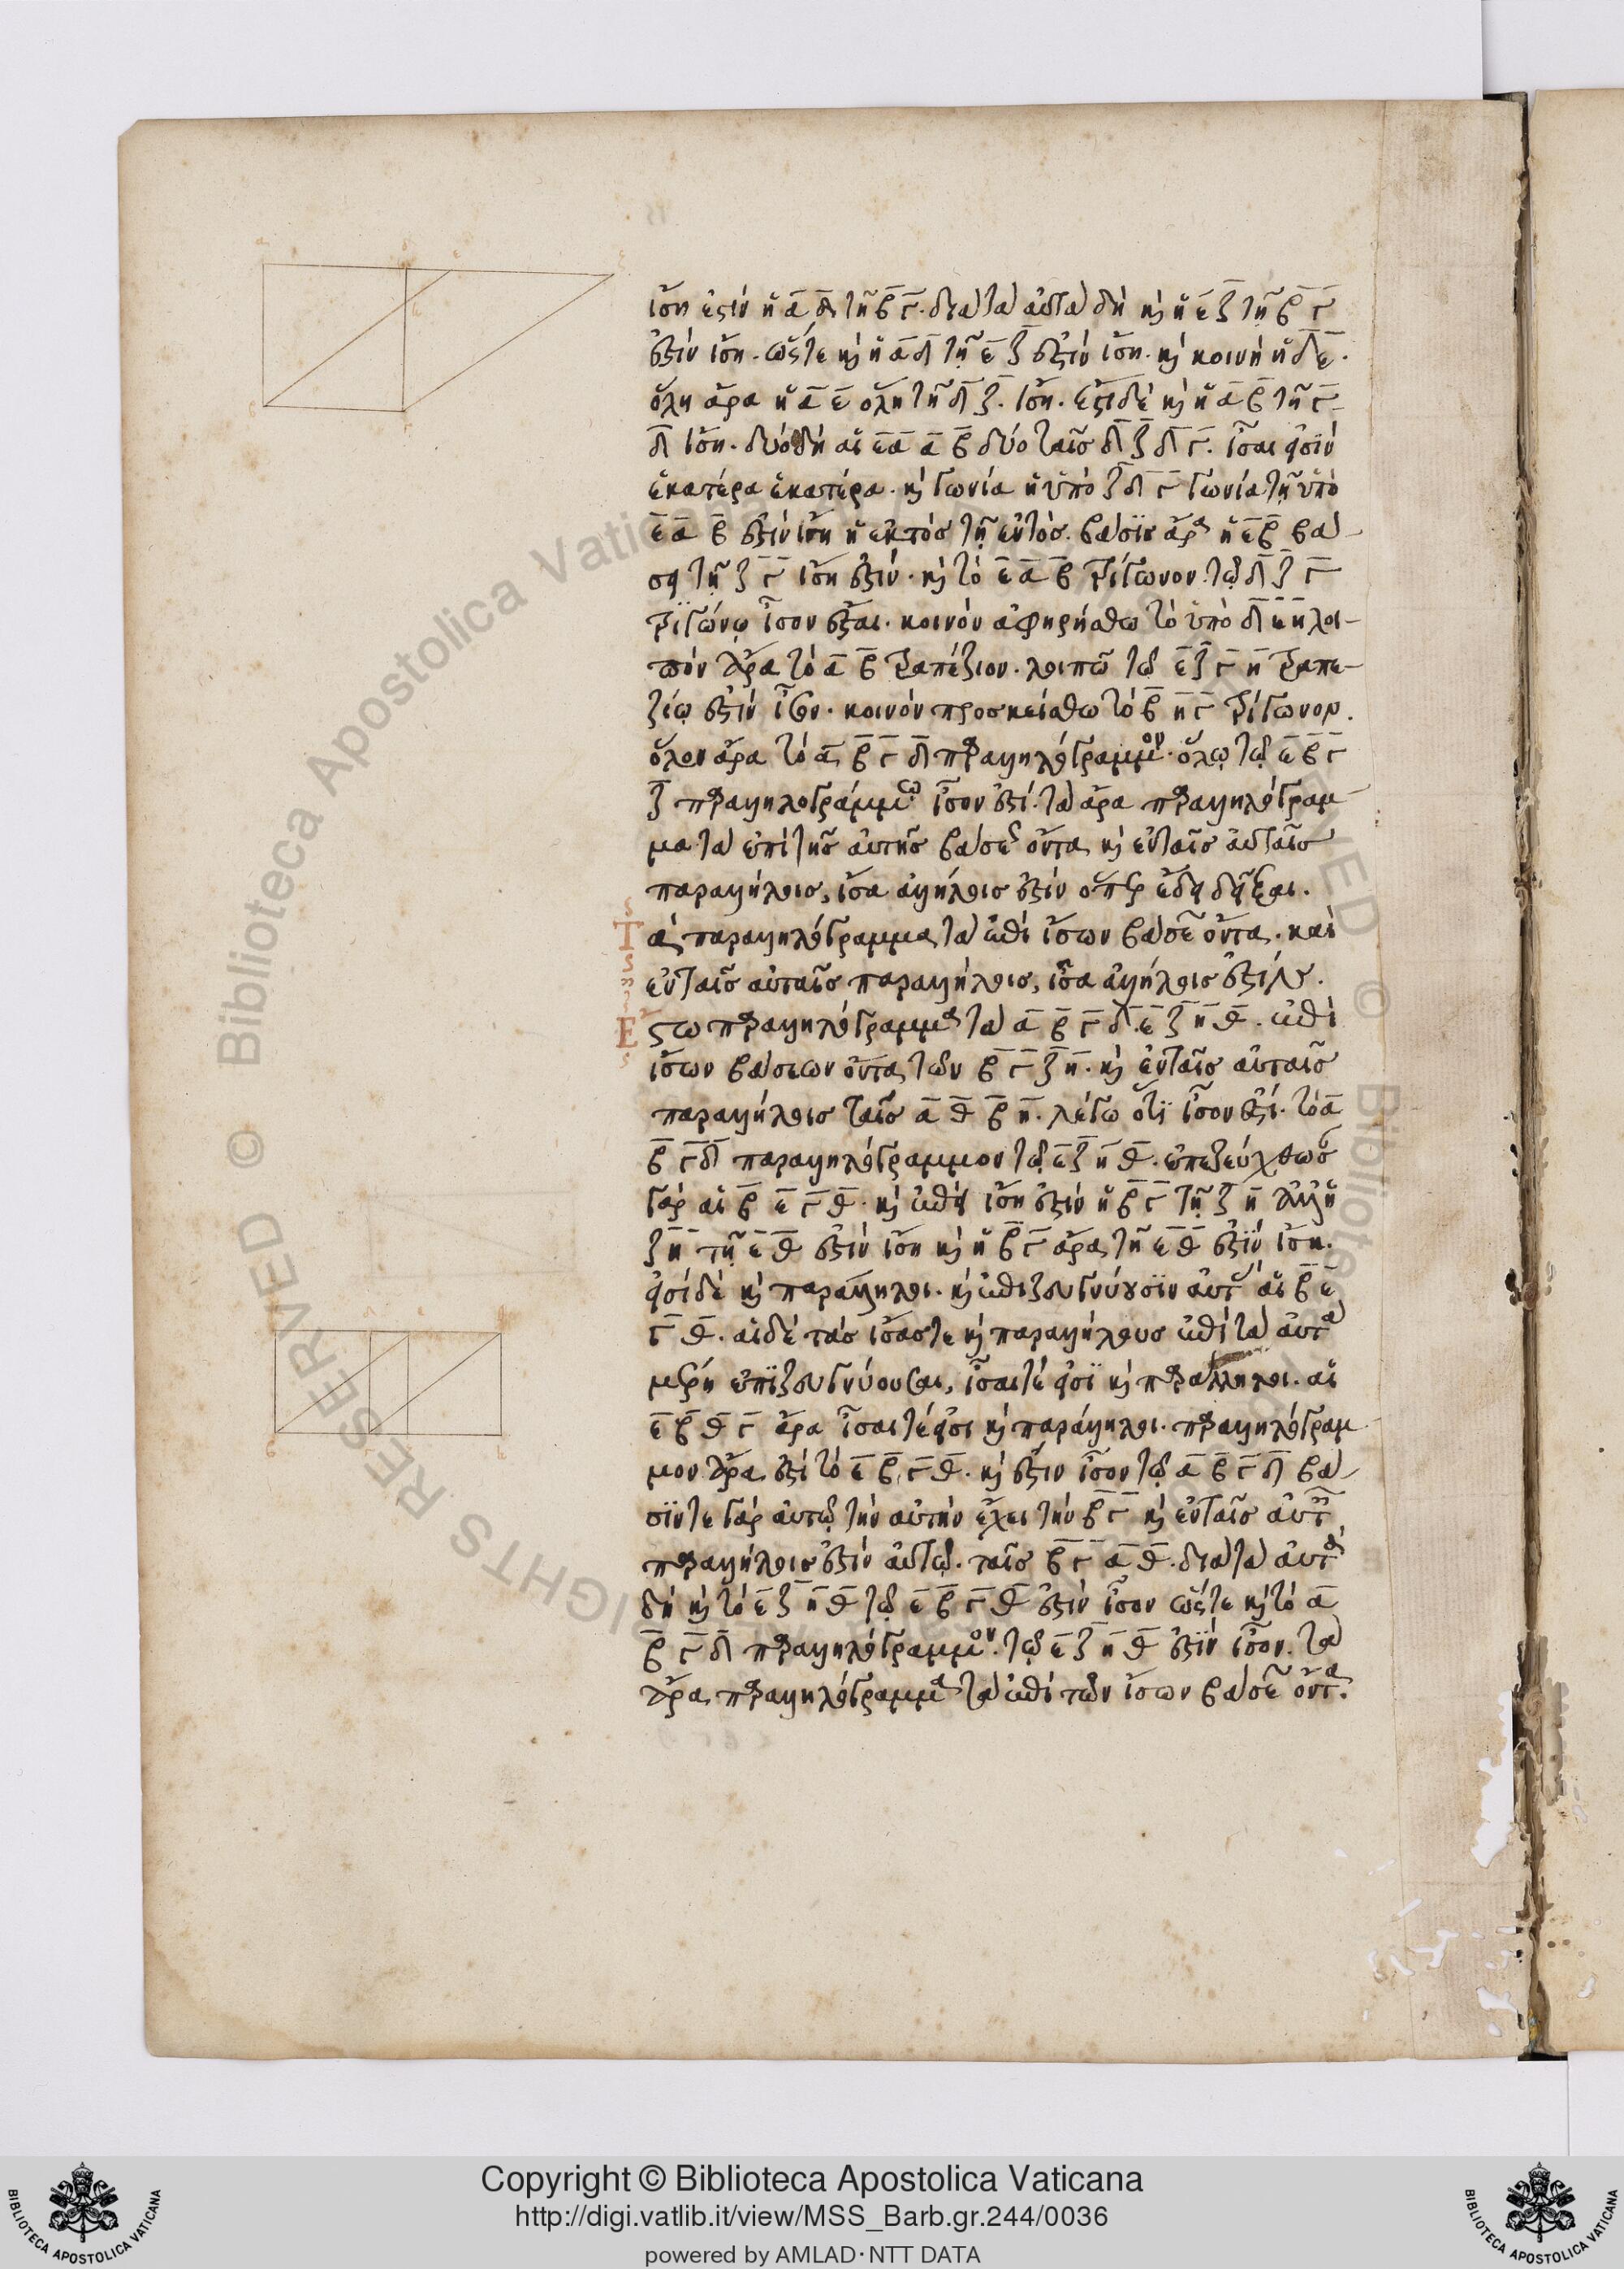 ἴση ἐστὶν ἡ α̅ δ̅ τῇ β̅ γ̅. διὰ τὰ αὐτὰ δὴ κὶ ἡ ε̅ ζ̅ τῇ β̅ γ̅
ἐστὶν ἴση. ὥστε κὶ ἡ α̅ δ̅ τῇ ε̅ ζ̅ ἐστὶν ἴση. κὶ κοινὴ ἡ δ̅ ε̅.
ὅλη ἄρα ἡ α̅ ε̅ ὅλη τῇ δ̅ ζ̅. ἴση. ἔστι δὲ κὶ ἡ α̅ β̅ τῇ γ̅
δ̅ ἴση. δύο δὴ αἱ ε̅ α̅ α̅ β̅ δύο ταῖσ δ̅ ζ̅ δ̅ γ̅. ἴσαι εἰσὶν
ἑκατέρα ἑκατέρα. κὶ γωνία ἡ ὑπὸ ζ̅ δ̅ γ̅ γωνία τῇ ὑπὸ
ε̅ α̅ β̅ ἐστὶν ἴση ἡ ἐκτὸσ τῇ ἐντόσ. βάσϊσ ἄρα ἡ ε̅ β̅ βά-
σει τῇ ζ̅ γ̅ ἴση ἐστίν. κὶ τὸ ε̅ α̅ β̅ τρίγωνον. τῷ δ̅ ζ̅ γ̅
τριγώνῳ ἴσον ἔσται. κοινὸν ἀφηρήσθω τὸ ὑπὸ δ̅ ε̅ η̅ λοι-
πὸν ἄρα τὸ α̅ β̅ τραπέζιον. λοιπῶ τῷ ε̅ ζ̅ γ̅ η̅ τραπε-
ζίῳ ἐστὶν ἴσον. κοινὸν προσκείσθω τὸ β̅ η̅ γ̅ τρίγωνον.
ὅλον ἄρα τὸ α̅ β̅ γ̅ δ̅ παραλληλόγραμμον. ὅλῳ τῷ ε̅ β̅ γ̅
ζ̅ παραλληλογράμμῳ ἴσον ἐστί. τὰ ἄρα παραλληλόγραμ-
μα τὰ ἐπὶ τῆσ αὐτῆσ βάσεωσ ὄντα κὶ ἐν ταῖσ αὐταῖσ
παραλλήλοισ, ἴσα ἀλλήλοισ ἐστίν ὅπερ ἔδει δεῖξαι.
Τὰ παραλληλόγραμμα τὰ ἐπὶ ἴσων βάσεων ὄντα. καὶ
ἐν ταῖσ αὐταῖσ παραλλήλοισ, ἴσα ἀλλήλοισ ἐστίν.
Ἔστω παραλληλόγραμμα τὰ α̅ β̅ γ̅ δ̅. ε̅ ζ̅ η̅ θ̅. ἐπὶ
ἴσων βάσεων ὄντα τῶν β̅ γ̅ ζ̅ η̅. κὶ ἐν ταῖσ αὐταῖσ
παραλλήλοισ ταῖσ α̅ θ̅ β̅ η̅. λέγω ὅτϊ ἴσον ἐστί. τὸ α̅
β̅ γ̅ δ̅ παραλληλόγραμμον τῷ ε̅ ζ̅ η̅ θ̅. ἐπεζεύχθωσ
γὰρ αἱ β̅ ε̅ γ̅ θ̅. κὶ ἐπεὶ ἴση ἐστὶν ἡ β̅ γ̅ τῇ ζ̅ η̅ ἀλλ ἡ
ζ̅ η̅ τῇ ε̅ θ̅ ἐστὶν ἴση κὶ ἡ β̅ γ̅ ἄρα τῇ ε̅ θ̅ ἐστϊν ἴση.
εἰσὶ δὲ κὶ παράλληλοι. κὶ ἐπιζευγνύουσϊν αὐτὰσ αἱ β̅ ε̅
γ̅ θ̅. αἱ δὲ τὰσ ἴσασ τε κὶ παραλλήλουσ ἐπὶ τὰ αὐτὰ
μέρη ἐπϊζευγνύουσαι, ἴσαι τέ εἰσϊ κὶ παράλληλοι. αἱ
ε̅ β̅ θ̅ γ̅ ἄρα ἴσαι τέ εἰσι κὶ παράλληλοι. παραλληλόγραμ
μον ἄρα ἐστὶ τὸ ε̅ β̅ γ̅ θ̅. κὶ ἔστιν ἴσον τῷ α̅ β̅ γ̅ δ̅ βά-
σϊν τε γὰρ αὐτῷ τὴν αὐτὴν ἔχει τὴν β̅ γ̅ κὶ ἐν ταῖσ αὐταῖσ
παραλλήλοισ ἐστὶν αὐτῷ. ταῖσ β̅ γ̅ α̅ θ̅. διὰ τὰ αὐτὰ
δὴ κὶ τὸ ε̅ ζ̅ η̅ θ̅ τῷ ε̅ β̅ γ̅ θ̅ ἐστὶν ἴσον ὥστε κὶ τὸ α̅
β̅ γ̅ δ̅ παραλληλόγραμμον. τῷ ε̅ ζ̅ η̅ θ̅ ἐστϊν ἴσον. τὰ
ἄρα παραλληλόγραμμα τὰ ἐπὶ τῶν ἴσων βάσεων ὄντα.
Copyright © Biblioteca Apostolica Vaticana
http://digi.vatlib.it/view/MSS_Barb.gr.244/0036
powered by AMLAD·NTT DATA
BIBLIOTECA APOSTOLICA VATICANA
BIBLIOTECA APOSTOLICA VATICANA